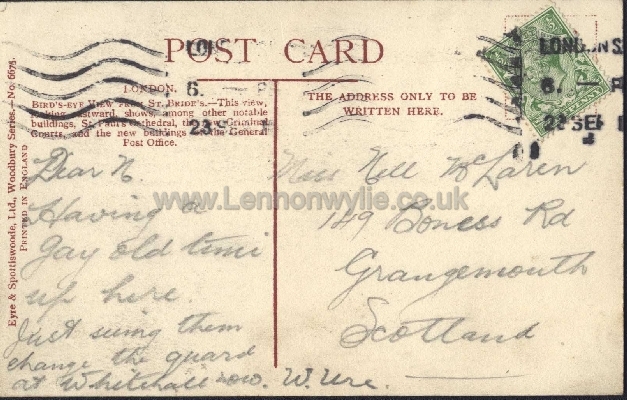 POST CARD
LONDON.
BIRD'S-EYE VIEW FROM ST. BRIDE'S.—This view,
looking eastward, shows, among other notable
buildings, St. Paul's Cathedral, the new Criminal
Courts, and the new buildings of the General
Post Office.
THE ADDRESS ONLY TO BE
WRITTEN HERE.
Eyre & Spottiswoode, Ltd., Woodbury Series.—No. 6675.
PRINTED IN ENGLAND
LONDON S.
6. — P
23 SEP 1
Dear N
Having a
gay old time
up here.
Just seeing them
change the guard
at Whitehall now. W. Ure.
Miss Nell McLaren
149 Boness Rd
Grangemouth
Scotland
www.Lennonwylie.co.uk